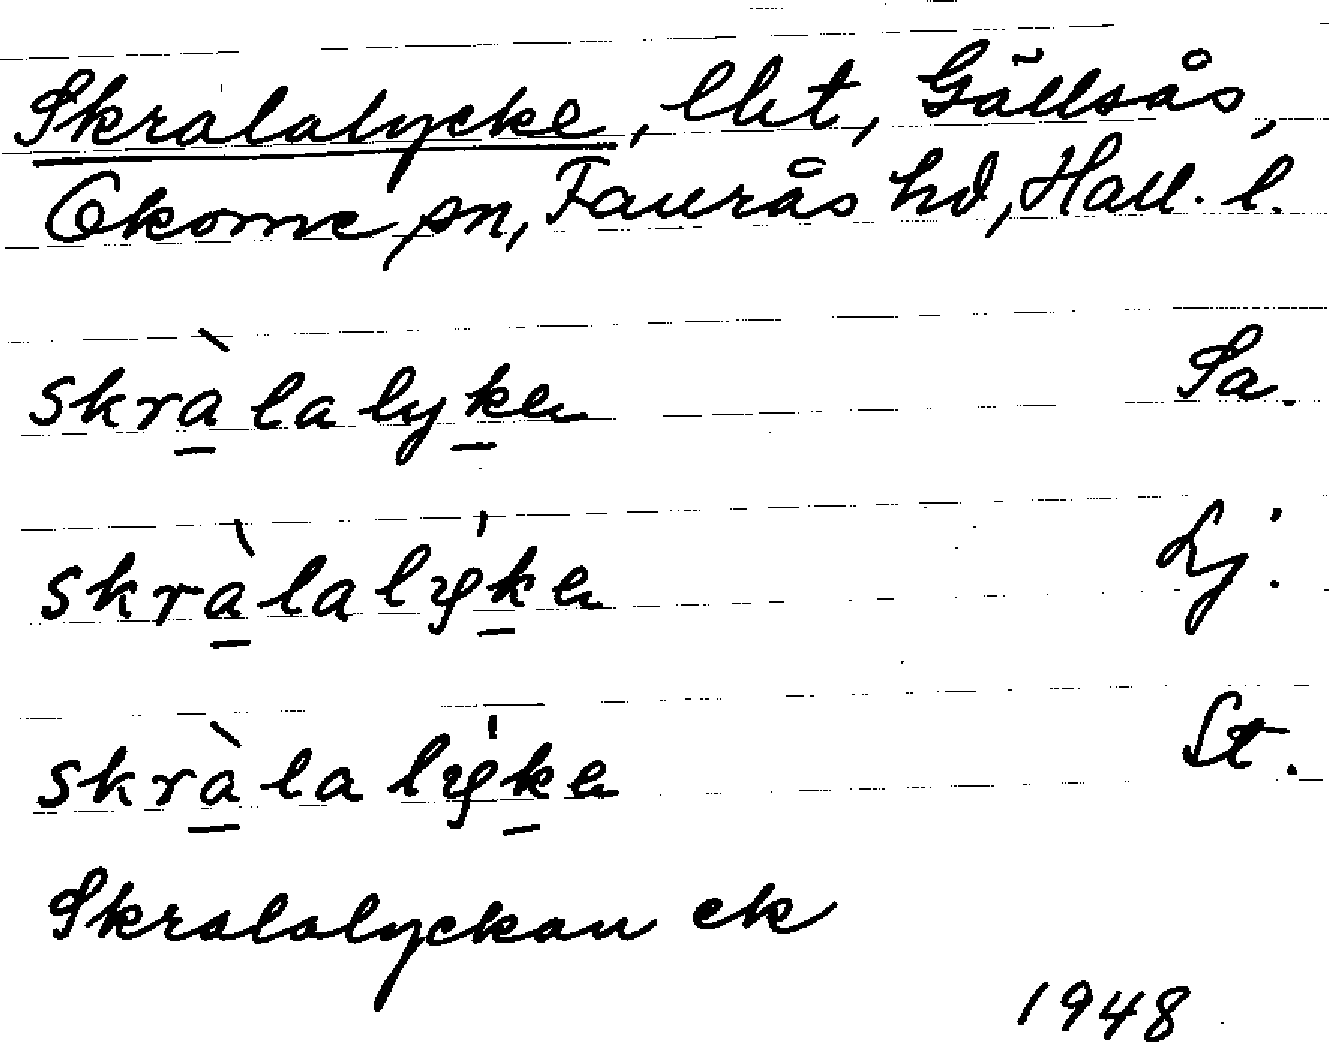 Skralalycke, lht, Gällsås,
Okome sn, Faurås hd, Hall. l.
skràlalyka Sa.
skràlalýka Lj.
skràlalýka St.
Skralalyckan ek
1948